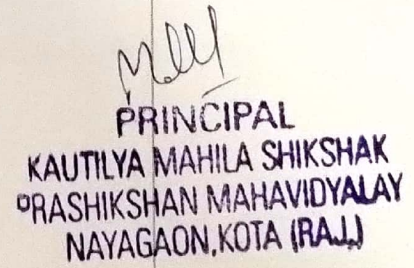 PRINCIPAL
KAUTILYA MAHILA SHIKSHAK
PRASHIKSHAN MAHAVIDYALAY
NAYAGAON,KOTA (RAJ.)